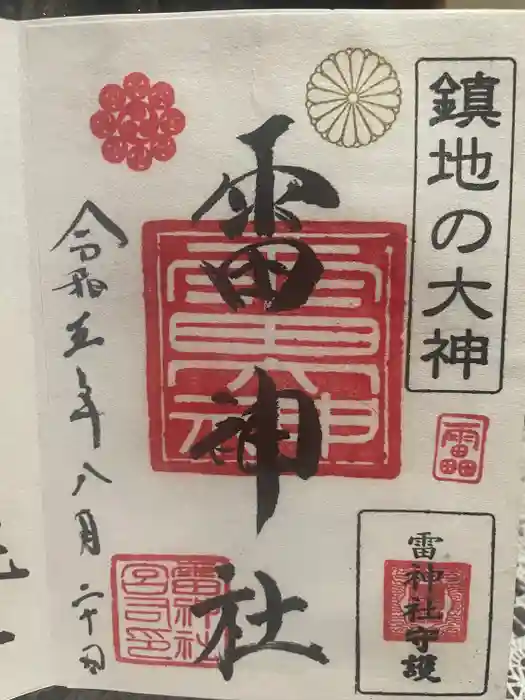 鎮地の大神
雷神社守護
雷神社
雷神社
宮司印
令和五年八月二十日